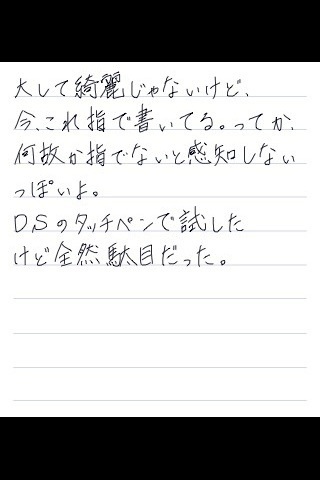 大して綺麗じゃないけど、
今、これ指で書いてる。ってか、
何故か指でないと感知しない
っぽいよ。
DSのタッチペンで試した
けど全然駄目だった。